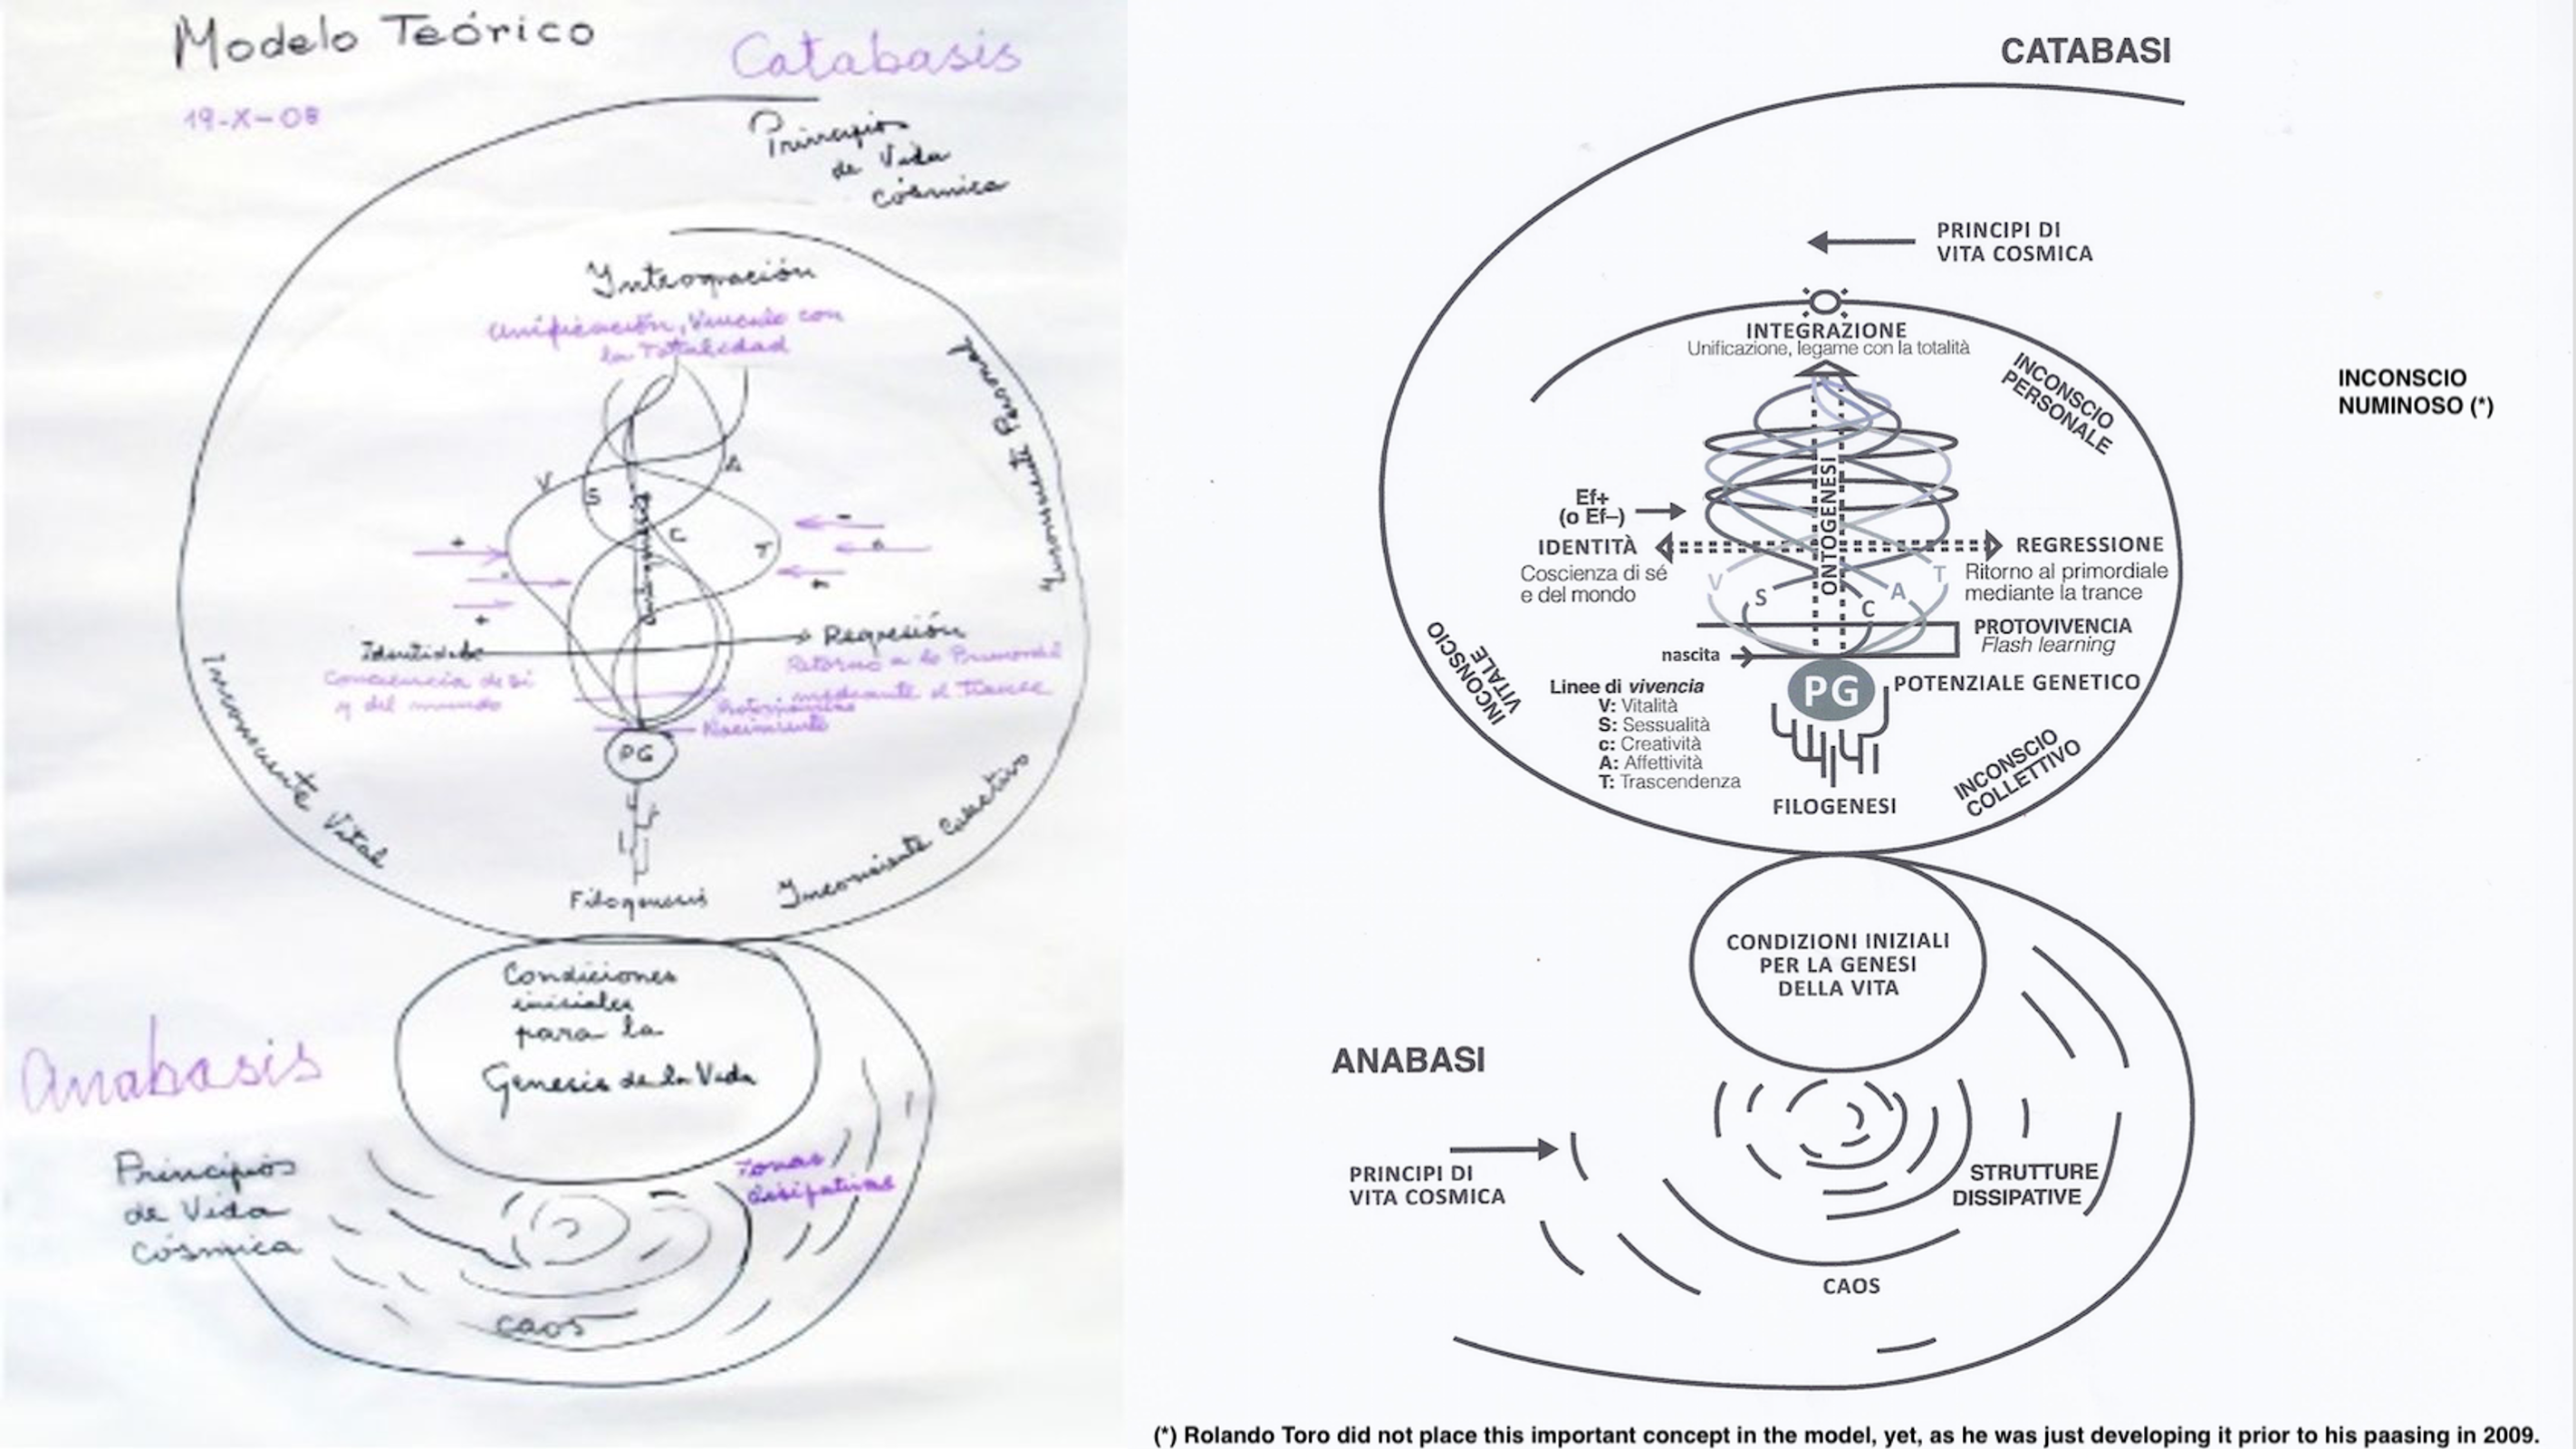 Modelo Teórico
19-X-08
Catabasis
Principios
de Vida
cósmica
Integración
Unificación, Vinculo con
la Totalidad
Inconsciente Personal
V
S
A
C
T
+
-
+
-
Identidad
Conciencia de si
y del mundo
Regresión
Retorno a lo Primordi
mediante el Trance
Nacimiento
PG
Filogenesis
Inconsciente Vital
Inconsciente Colectivo
Condiciones
iniciales
para la
Genesis de la Vida
Anabasis
Principios
de Vida
Cósmica
zonas
disipativas
caos
CATABASI
PRINCIPI DI
VITA COSMICA
INTEGRAZIONE
Unificazione, legame con la totalità
INCONSCIO
PERSONALE
INCONSCIO
NUMINOSO (*)
ONTOGENESI
Ef+
(o Ef–)
IDENTITÀ
Coscienza di sé
e del mondo
REGRESSIONE
Ritorno al primordiale
mediante la trance
V
S
C
A
T
PROTOVIVENCIA
Flash learning
nascita
PG
POTENZIALE GENETICO
Linee di vivencia
V: Vitalità
S: Sessualità
c: Creatività
A: Affettività
T: Trascendenza
INCONSCIO
VITALE
FILOGENESI
INCONSCIO
COLLETTIVO
CONDIZIONI INIZIALI
PER LA GENESI
DELLA VITA
ANABASI
PRINCIPI DI
VITA COSMICA
STRUTTURE
DISSIPATIVE
CAOS
(*) Rolando Toro did not place this important concept in the model, yet, as he was just developing it prior to his paasing in 2009.